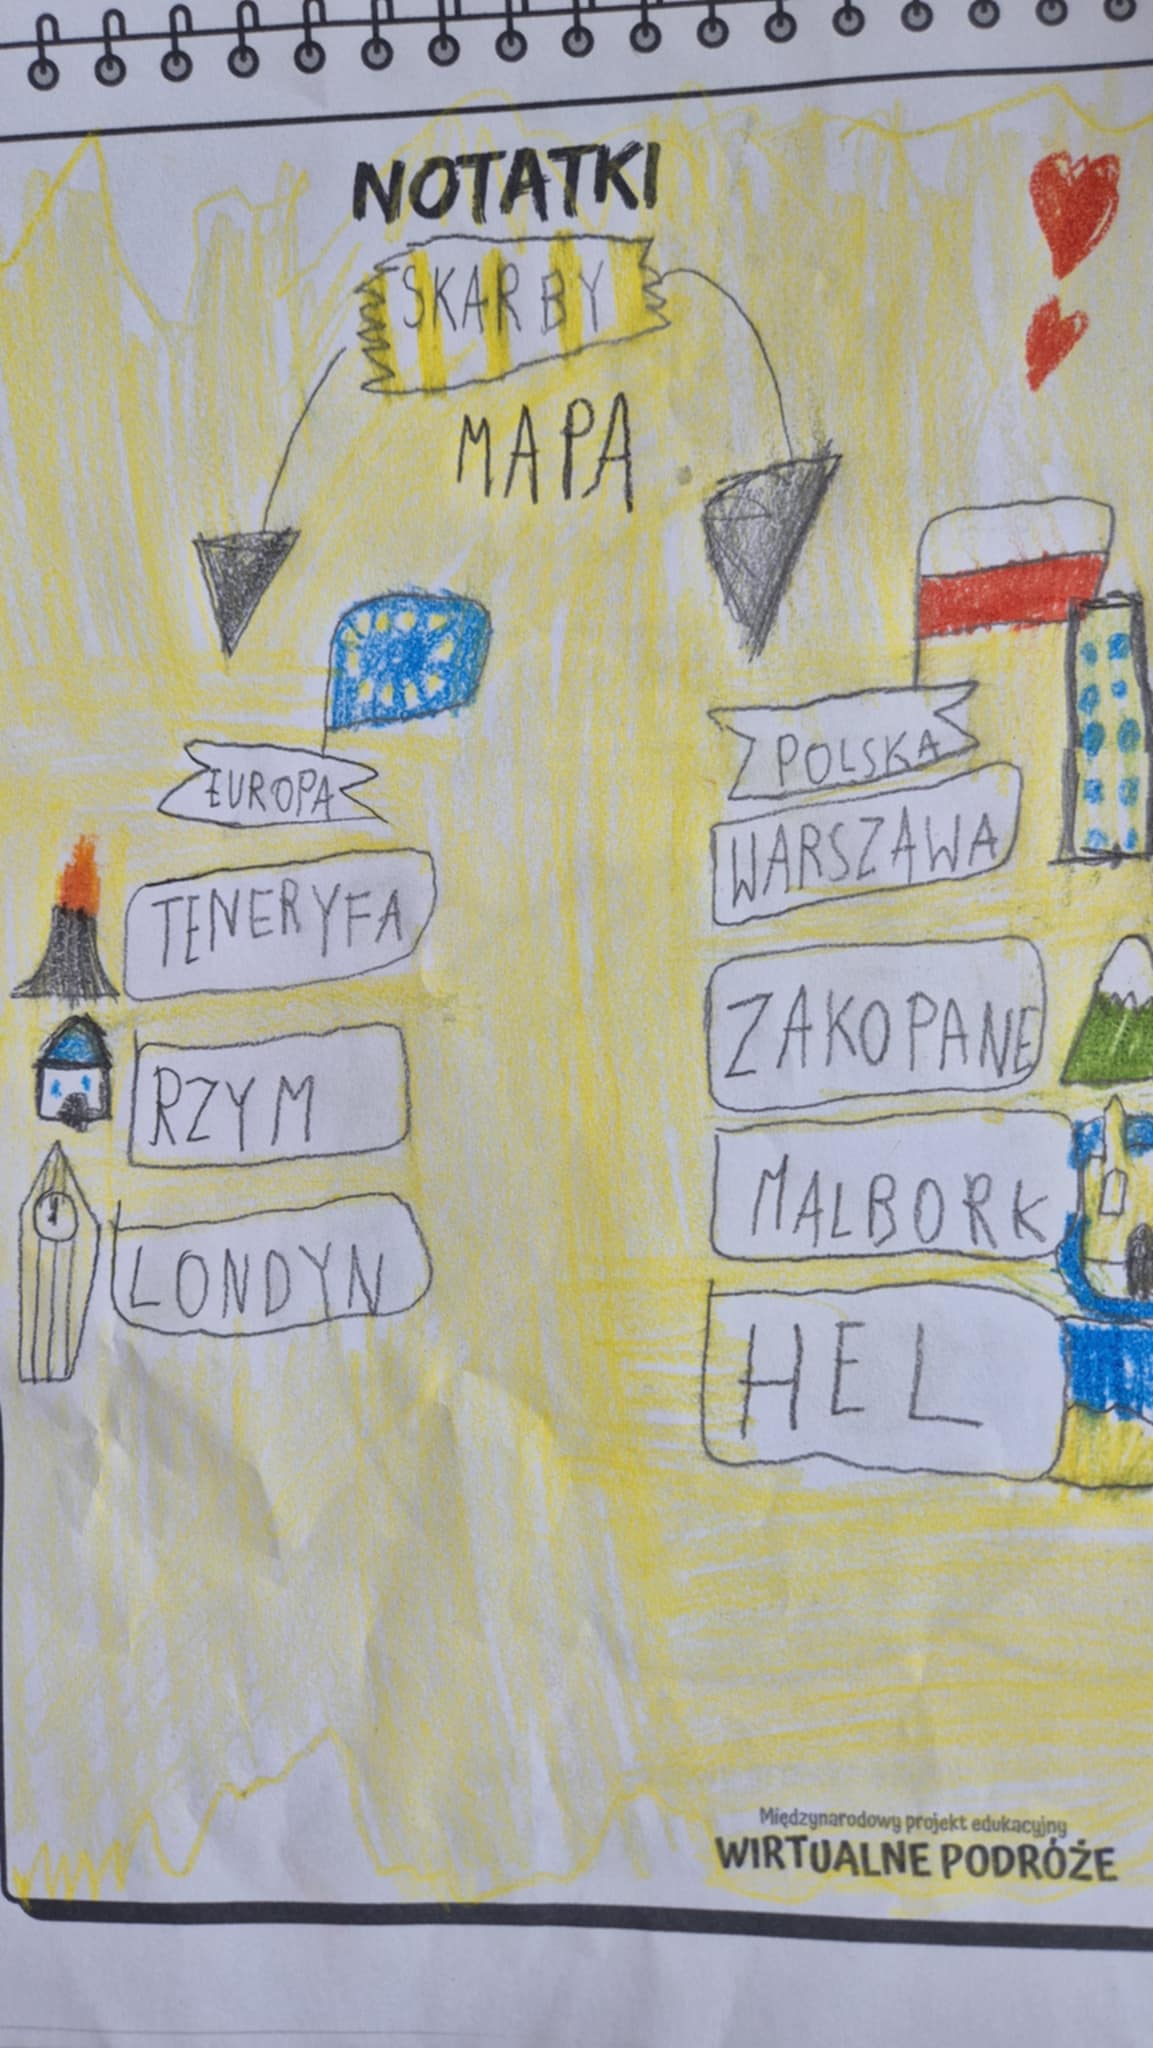 NOTATKI
SKARBY
MAPA
EUROPA
TENERYFA
RZYM
LONDYN
POLSKA
WARSZAWA
ZAKOPANE
MALBORK
HEL
Międzynarodowy projekt edukacyjny
WIRTUALNE PODRÓŻE